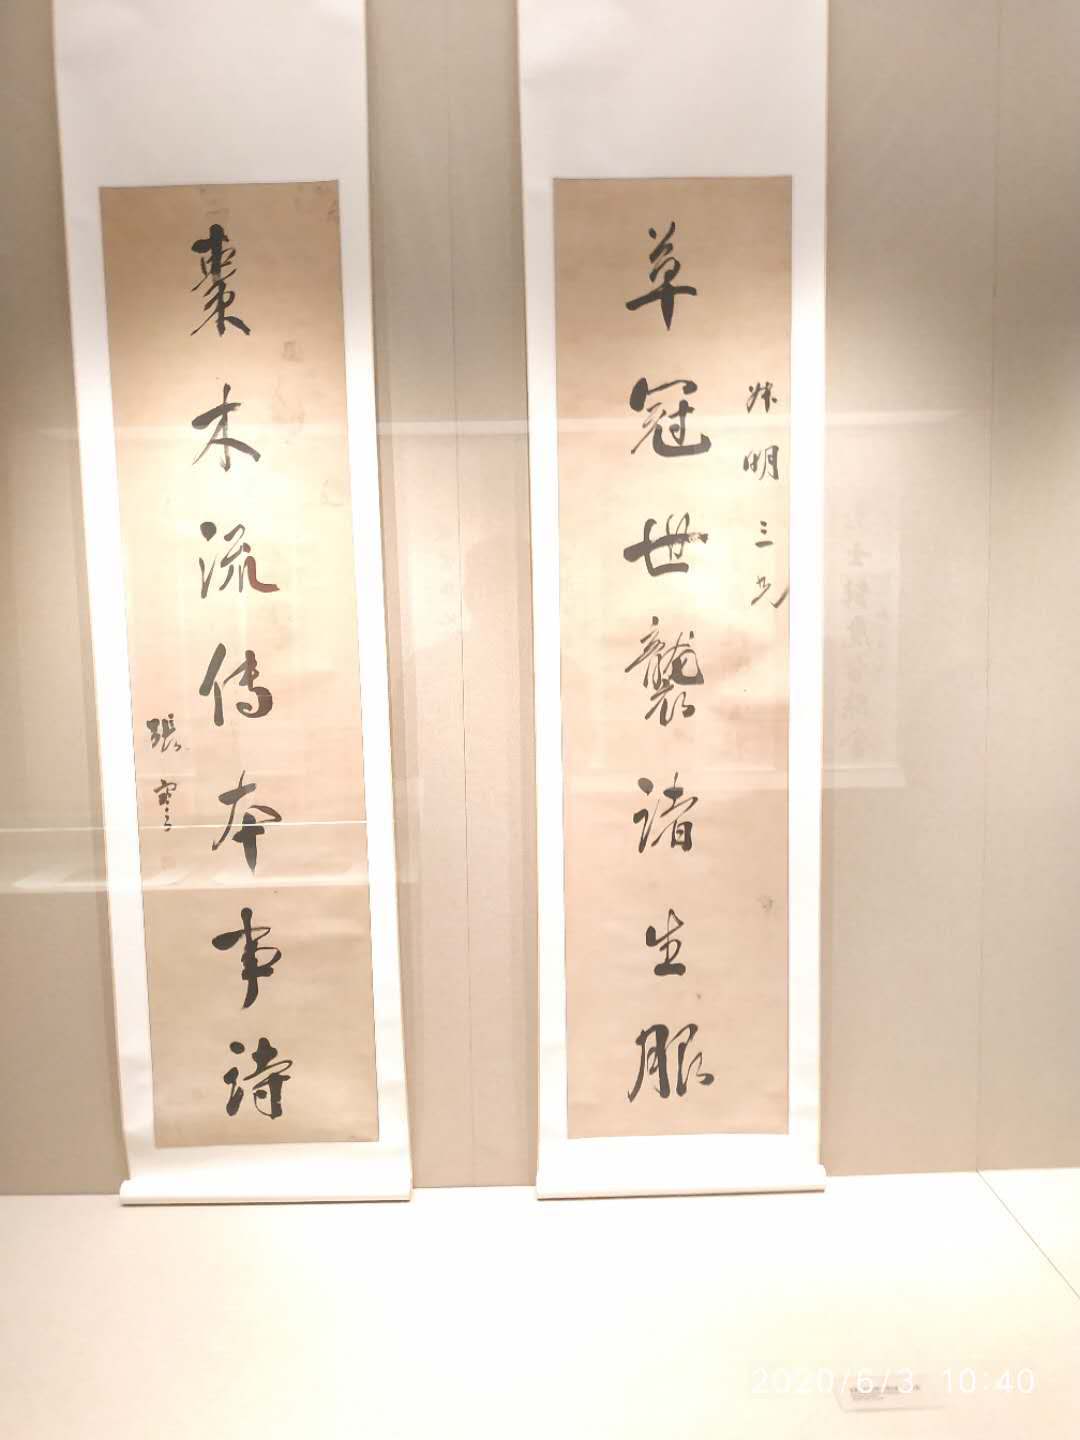 草冠世襲諸生服
明三兄
棗木流傳本事詩
張謇
2020/6/3 10:40